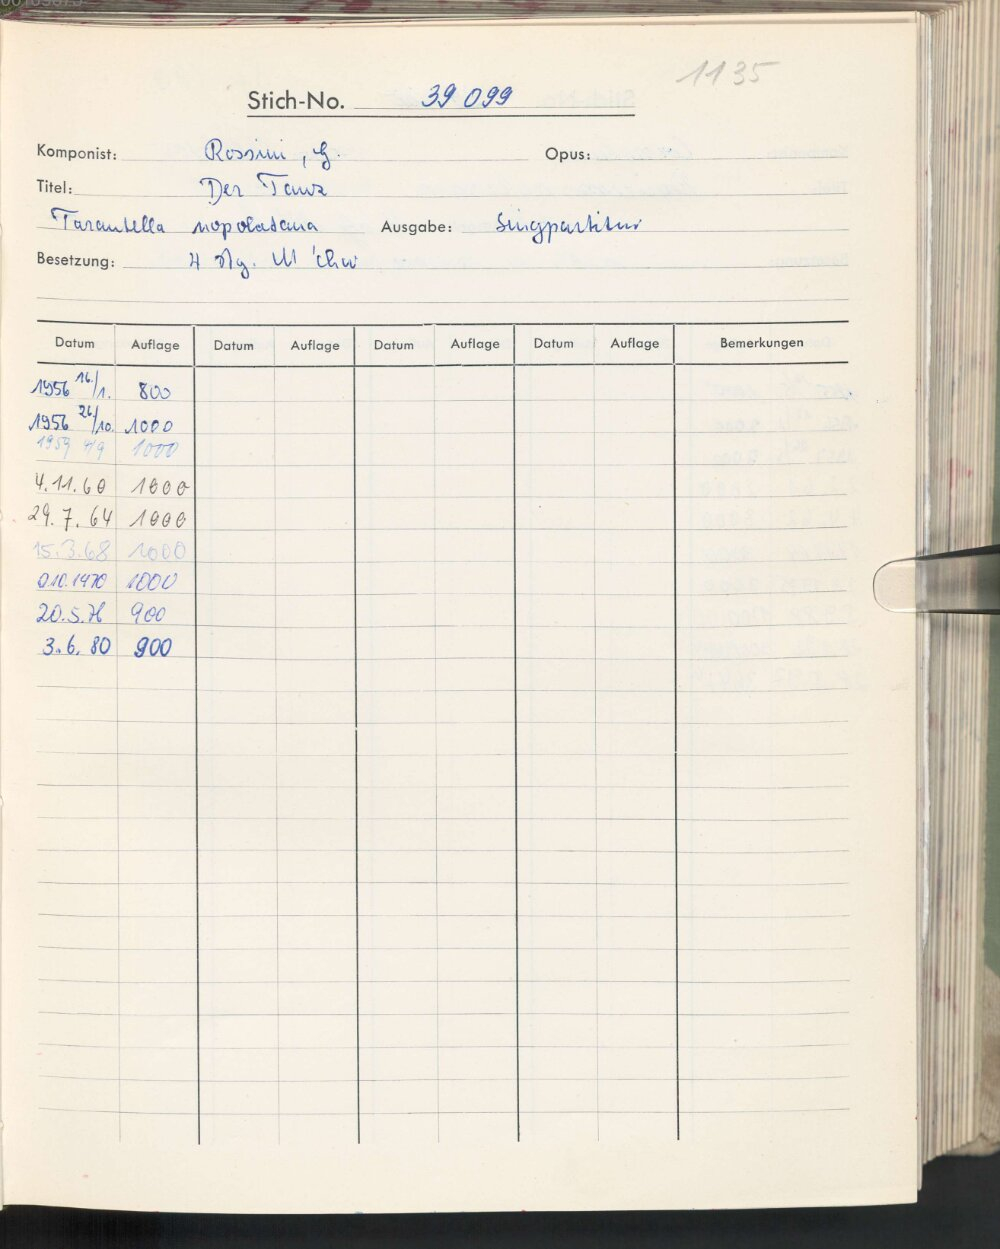 1135
Stich-No. 39 099
Komponist: Rossini, G. Opus:
Titel: Der Tanz
Tarantella napoletana Ausgabe: Singpartitur
Besetzung: 4 stg. M'chor
Datum Auflage Datum Auflage Datum Auflage Datum Auflage Bemerkungen
1956 16./1. 800
1956 26./10. 1000
1959 4/9 1000
4.11.60 1000
29.7.64 1000
15.3.68 1000
1000
20.5.76 900
3.6.80 900